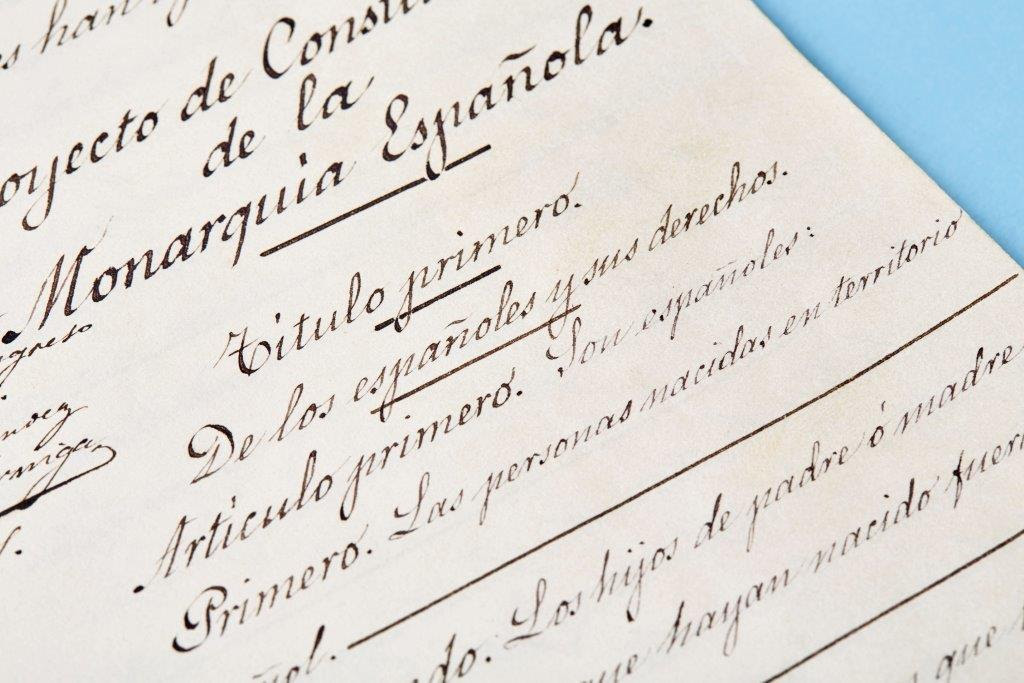 es han
oyecto de Constitu
de la
Monarquia Española.
Título primero.
De los españoles y sus derechos.
Artículo primero. Son españoles:
Primero. Las personas nacidas en territorio
ñol.
do. Los hijos de padre ó madre
que hayan nacido fuera
que